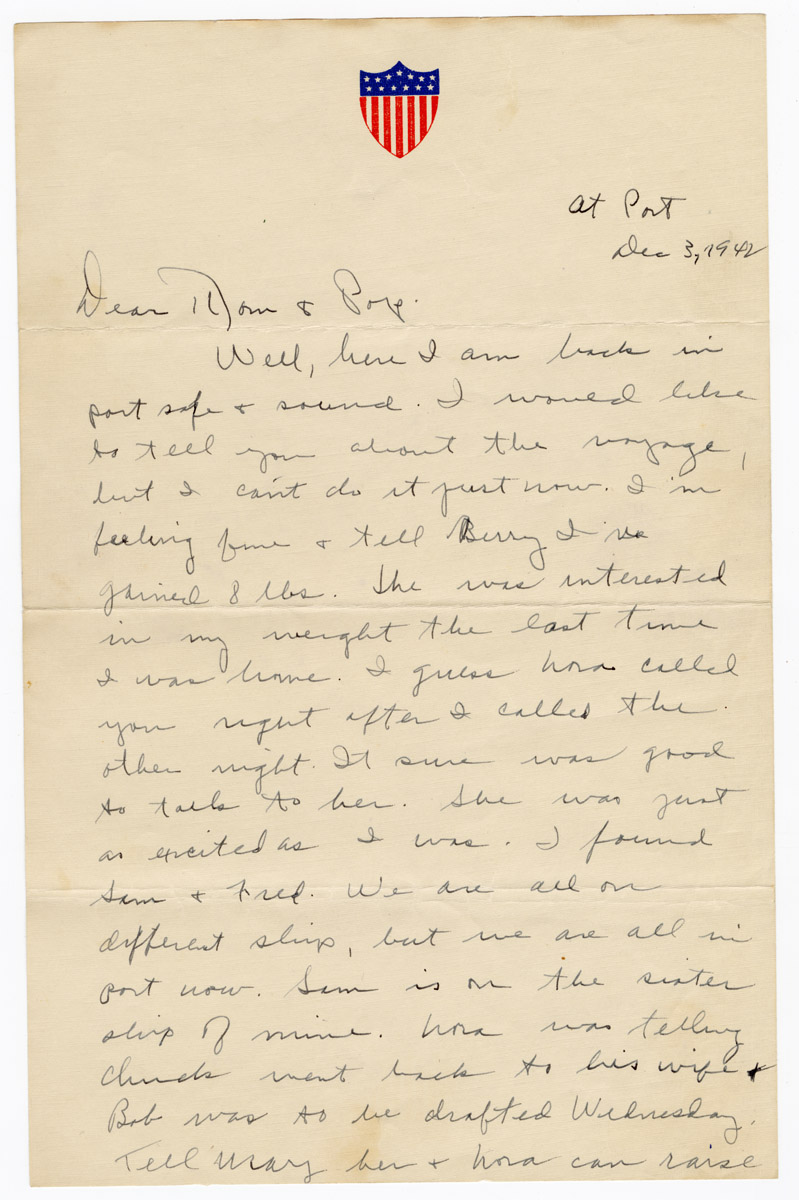 At Port
Dec 3, 1942
Dear Mom & Pop.
Well, here I am back in
port safe & sound. I would like
to tell you about the voyage,
but I can't do it just now. I'm
feeling fine & tell Berry I've
gained 8 lbs. She was interested
in my weight the last time
I was home. I guess Nora called
you right after I called the
other night. It sure was good
to talk to her. She was just
as excited as I was. I found
Sam & Fred. We are all on
different ships, but we are all in
port now. Sam is on the sister
ship of mine. Nora was telling
Chuck went back to his wife &
Bob was to be drafted Wednesday.
Tell Mary her & Nora can raise